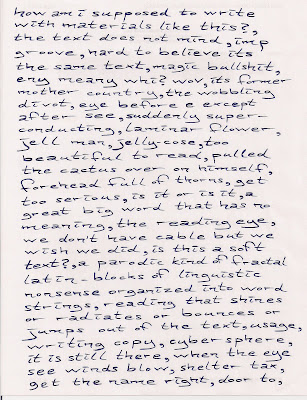 how am i supposed to write
with materials like this?,
the text does not mind, imp
groove, hard to believe its
the same text, magic bullshit,
eny meany whi? wov, its former
mother country, the wobbling
divot, eye before e except
after see, suddenly super-
conducting, laminar flower,
jell man, jelly-cose, too
beautiful to read, pulled
the cactus over on himself,
forehead full of thorns, get
too serious, is it or is it, a
great big word that has no
meaning, the reading eye,
we don't have cable but we
wish we did, is this a soft
text?, a parodic kind of fractal
latin-blocks of linguistic
nonsense organized into word
strings, reading that shines
or radiates or bounces or
jumps out of the text, usage,
writing copy, cyber sphere,
it is still there, when the eye
see winds blow, shelter tax,
get the name right, door to,